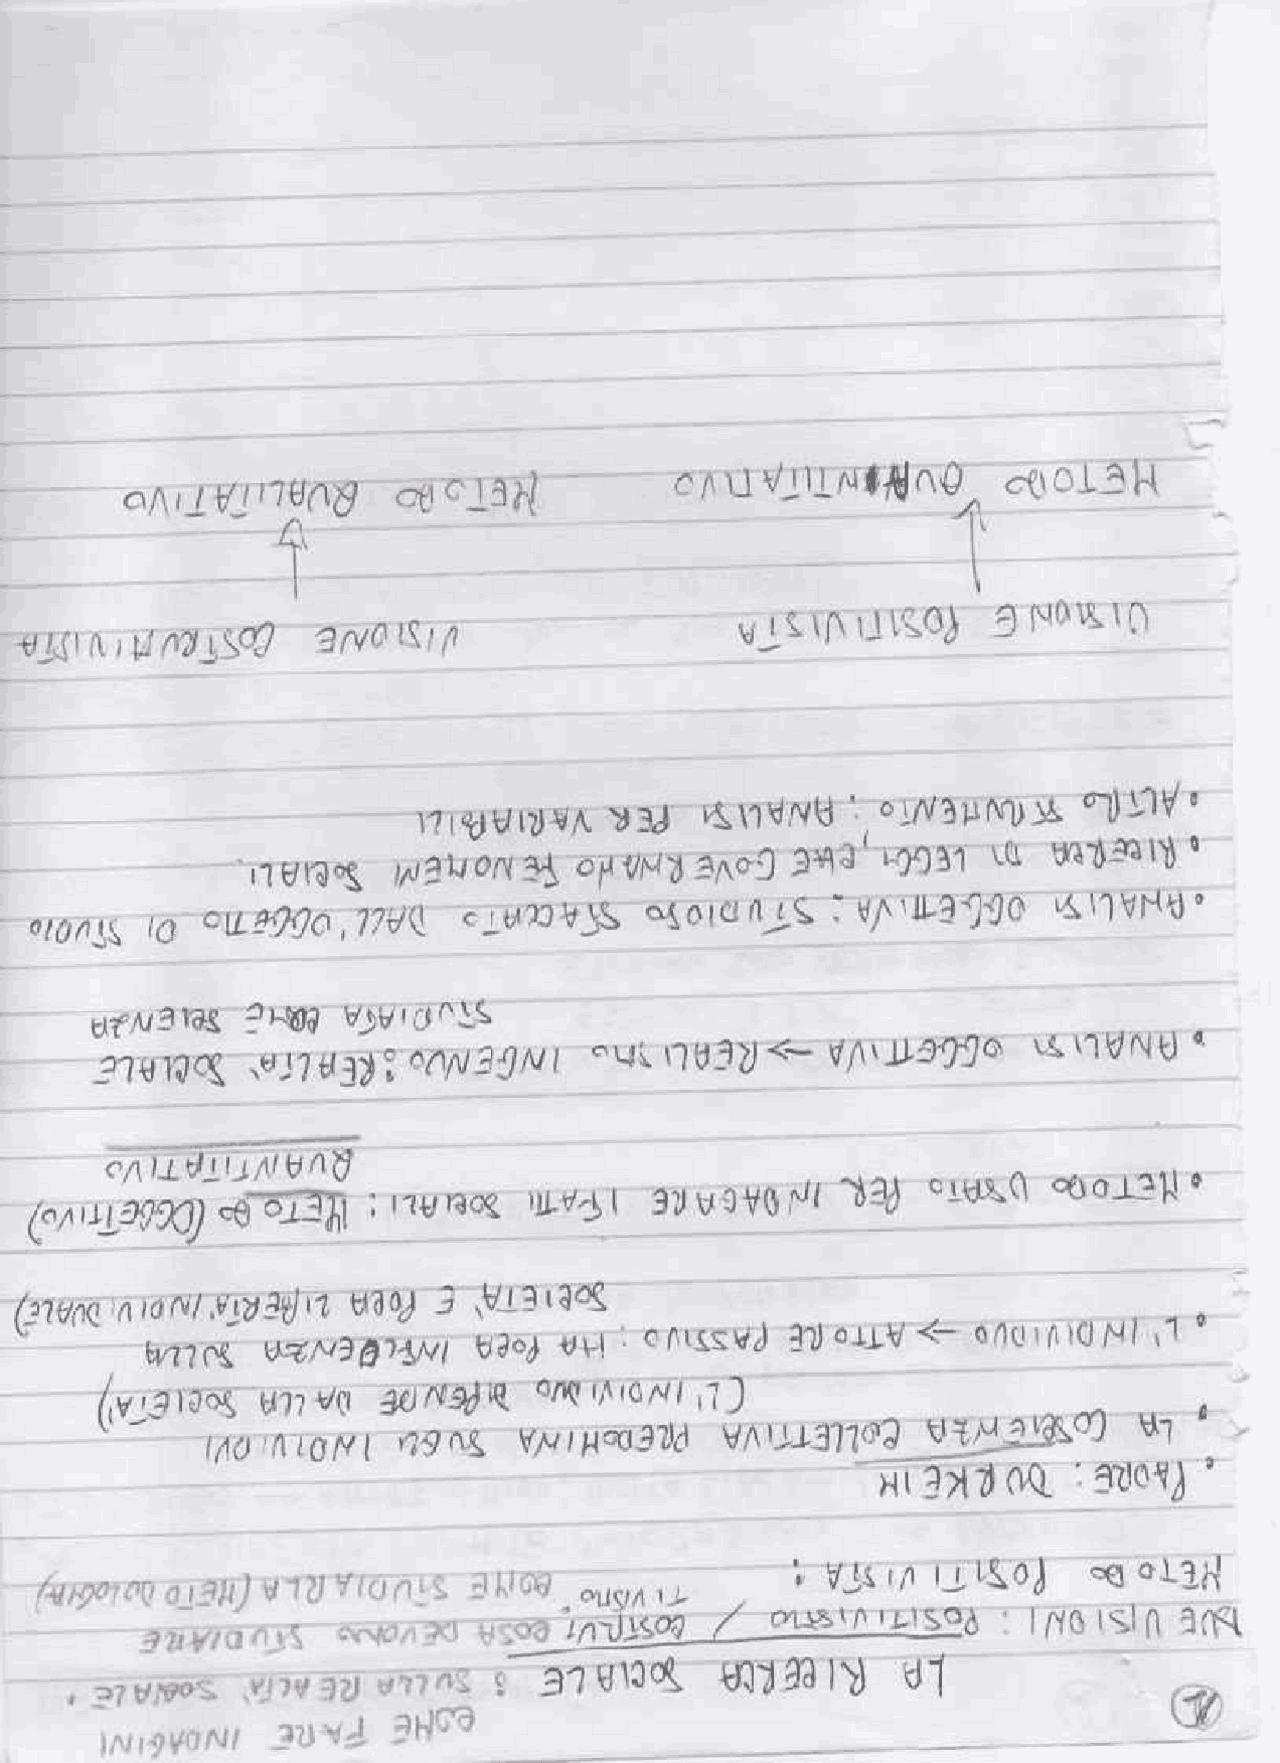 1
COME FARE INDAGINI
LA RICERCA SOCIALE : SULLA REALTA' SOCIALE.
DUE VISIONI : POSITIVISMO / COSTRUT COSA DEVONO STUDIARE
TIVISMO. COME STUDIARLA (METODOLOGIA)
METODO POSITIVISTA :
• PADRE : DURKEIM
• LA COSCIENZA COLLETTIVA PREDOMINA SUGLI INDIVIDUI
(L'INDIVIDUO DIPENDE DALLA SOCIETA')
• L'INDIVIDUO → ATTORE PASSIVO : HA POCA INFLUENZA SULLA
SOCIETA' E POCA LIBERTA' INDIVIDUALE)
• METODO USATO PER INDAGARE I FATTI SOCIALI : METODO (OGGETTIVO)
QUANTITATIVO
• ANALISI OGGETTIVA → REALISMO INGENUO : REALTA' SOCIALE
STUDIATA COME SCIENZA
• ANALISI OGGETTIVA : STUDIOSO STACCATO DALL'OGGETTO DI STUDIO
• RICERCA DI LEGGI, CHE GOVERNANO FENOMENI SOCIALI.
• ALTRO STRUMENTO : ANALISI PER VARIABILI
VISIONE POSITIVISTA VISIONE COSTRUTTIVISTA
METODO QUANTITATIVO METODO QUALITATIVO